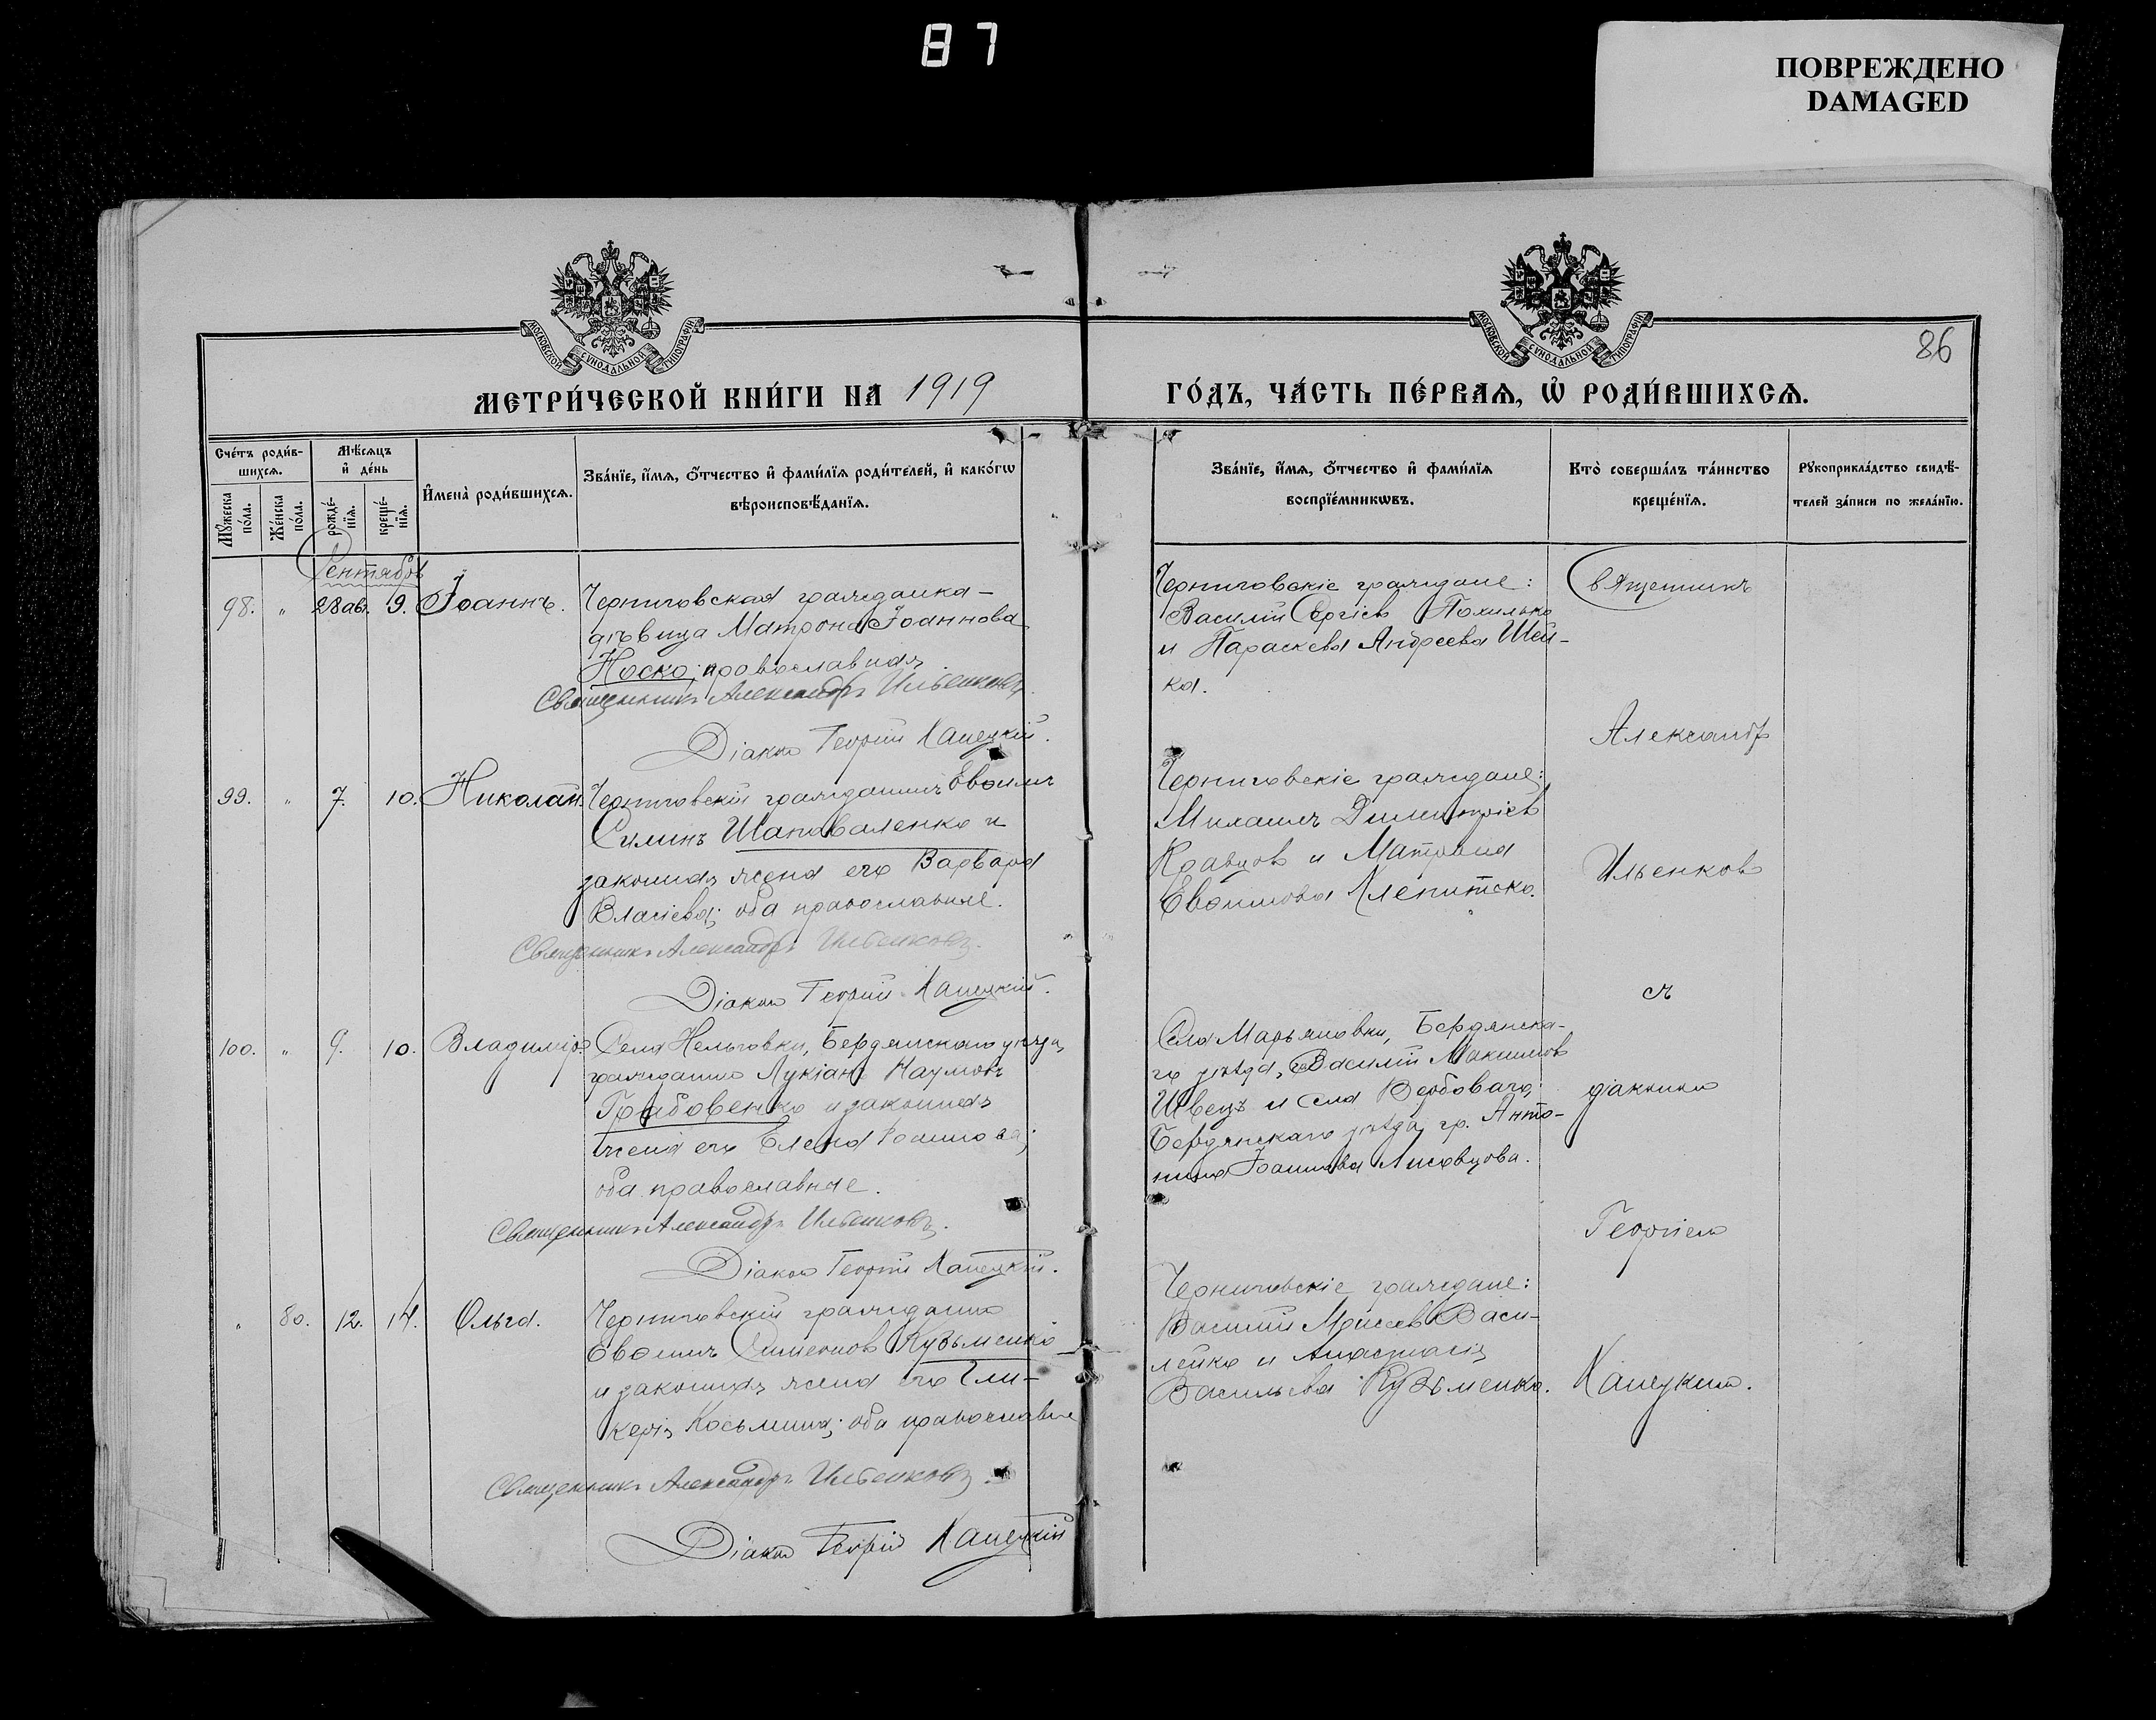 87
ПОВРЕЖДЕНО
DAMAGED
МОСКОВСКОЙ СѴНОДАЛЬНОЙ ТИПОГРАФІИ
МОСКОВСКОЙ СѴНОДАЛЬНОЙ ТИПОГРАФІИ
86
МЕТРИ́ЧЕСКОЙ КНИ́ГИ НА 1919
ГО́ДЪ, ЧА́СТЬ ПЕ́РВАѦ, Ѡ҆ РОДИ́ВШИХСѦ.
Сче́тъ роди́в-
шихсѧ.
Мѣ́сѧцъ
и҆ де́нь
И҆мена̀ роди́вшихсѧ.
Зва́нїе, и҆́мѧ, ѻ҆́тчество и҆ фами́лїѧ роди́телей, и҆ како́гѡ
вѣроисповѣ́данїѧ.
Мꙋ́жеска по́ла.
Же́нска по́ла.
рожде́-
нїѧ.
креще́-
нїѧ.
Зва́нїе, и҆́мѧ, ѻ҆́тчество и҆ фами́лїѧ
воспрїе́мникѡвъ.
Кто̀ соверша́лъ та́инство
креще́нїѧ.
Рꙋкоприкла́дство свидѣ́-
телей за́писи по жела́нїю.
Сентябрь
98. " 28 авг. 9. Іоаннъ. Черниговская гражданка –
дѣвица Матрона Іоаннова
Носко; православная.
Священникъ Александръ Ильенковъ.
Діаконъ Георгій Капецкій.
Черниговскіе граждане:
Василій Сергіевъ Похилько
и Параскева Андреева Шей-
ка.
Священникъ
Александръ
99. " 7. 10. Николай. Черниговскій гражданинъ Евѳимъ
Силинъ Шаповаленко и
законная жена его Варвара
Власіева; оба православные.
Священникъ Александръ Ильенковъ.
Діаконъ Георгій Капецкій.
Черниговскіе граждане:
Михаилъ Димитріевъ
Кравцовъ и Матрона
Евѳимова
Ильенковъ
съ
100. " 9. 10. Владиміръ. Села Нельговки, Бердянскаго уѣзда,
гражданинъ Лукіанъ Наумовъ
Грабовенко и законная
жена его Елена Іоаннова;
оба православные.
Священникъ Александръ Ильенковъ.
Діаконъ Георгій Капецкій.
Села Марьяновки, Бердянска-
го уѣзда, Василій Максимовъ
Швецъ и села Вербоваго,
Бердянскаго уѣзда, гр. Анто-
нина Іоаннова Лисовцова.
діакономъ
Георгіемъ
" 80. 12. 14. Ольга. Черниговскій гражданинъ
Евѳимъ Симеоновъ Кузьменко
и законная жена его Гли-
керія Косьмина; оба православные
Священникъ Александръ Ильенковъ.
Діаконъ Георгій Капецкій
Черниговскіе граждане:
Василій Моисеевъ Васи-
лейко и Анастасія
Васильева Кузьменко.
Капецкимъ.